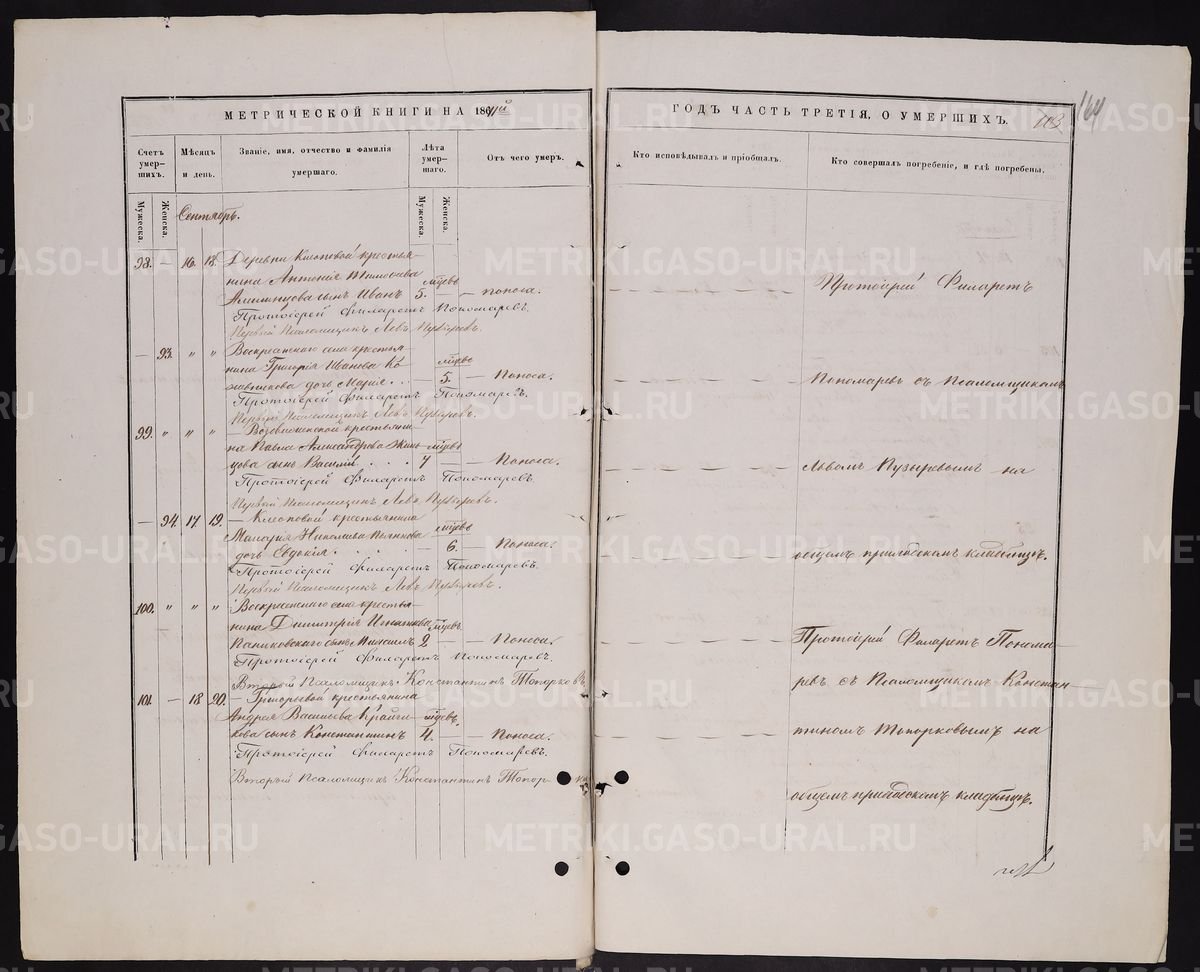 МЕТРИЧЕСКОЙ КНИГИ НА 18
Счетъ умер-шихъ.
Мѣсяцъ и день.
Званіе, имя, отчество и фамилія умершаго.
Лѣта умер-шаго.
Отъ чего умеръ.
Мужеска.
Женска.
Мужеска.
Женска.
Сентябрь.
98. — 16. 18. Деревни крестья-
нина Антонія Тимофеева мѣсяв
сынъ Иванъ 5. — поноса.
Протоіерей Филаретъ Пономаревъ.
Первый Псаломщикъ Левъ Пузыревъ.
— 93. " " Воскресенскаго села крестья-
нина Григорія Иванова Ко-
жевникова дочь Марія . . — 5. — Поноса.
Протоіерей Филаретъ Пономаревъ.
Первый Псаломщикъ Левъ Пузыревъ.
99. " " " — крестьяни-
на Павла Александрова
сынъ Василій . . . . 7 — — Поноса.
Протоіерей Филаретъ Пономаревъ.
Первый Псаломщикъ Левъ Пузыревъ.
— 94. 17 19. — крестьянина
Николаева
дочь Евдокія . . . . — 6. — Поноса.
Протоіерей Филаретъ Пономаревъ.
Первый Псаломщикъ Левъ Пузыревъ.
100. " " " Воскресенскаго села крестья-
нина Димитрія Игнатьева
сынъ Михаилъ 2 — — Поноса.
Протоіерей Филаретъ Пономаревъ.
Второй Псаломщикъ Константинъ Топорковъ
101. — 18 20. — крестьянина
Андрея Васильева
сынъ Константинъ 4. — — Поноса.
Протоіерей Филаретъ Пономаревъ.
Второй Псаломщикъ Константинъ Топор-
ГОДЪ ЧАСТЬ ТРЕТІЯ, О УМЕРШИХЪ.
113
164
Кто исповѣдывалъ и пріобщалъ.
Кто совершалъ погребеніе, и гдѣ погребены.
Протоіерей Филаретъ
Пономаревъ съ Псаломщикомъ
Львомъ Пузыревымъ на
общемъ приходскомъ кладбищѣ.
Протоіерей Филаретъ Понома-
ревъ съ Псаломщикомъ Констан-
тиномъ Топорковымъ на
общемъ приходскомъ кладбищѣ.
METRIKI.GASO-URAL.RU